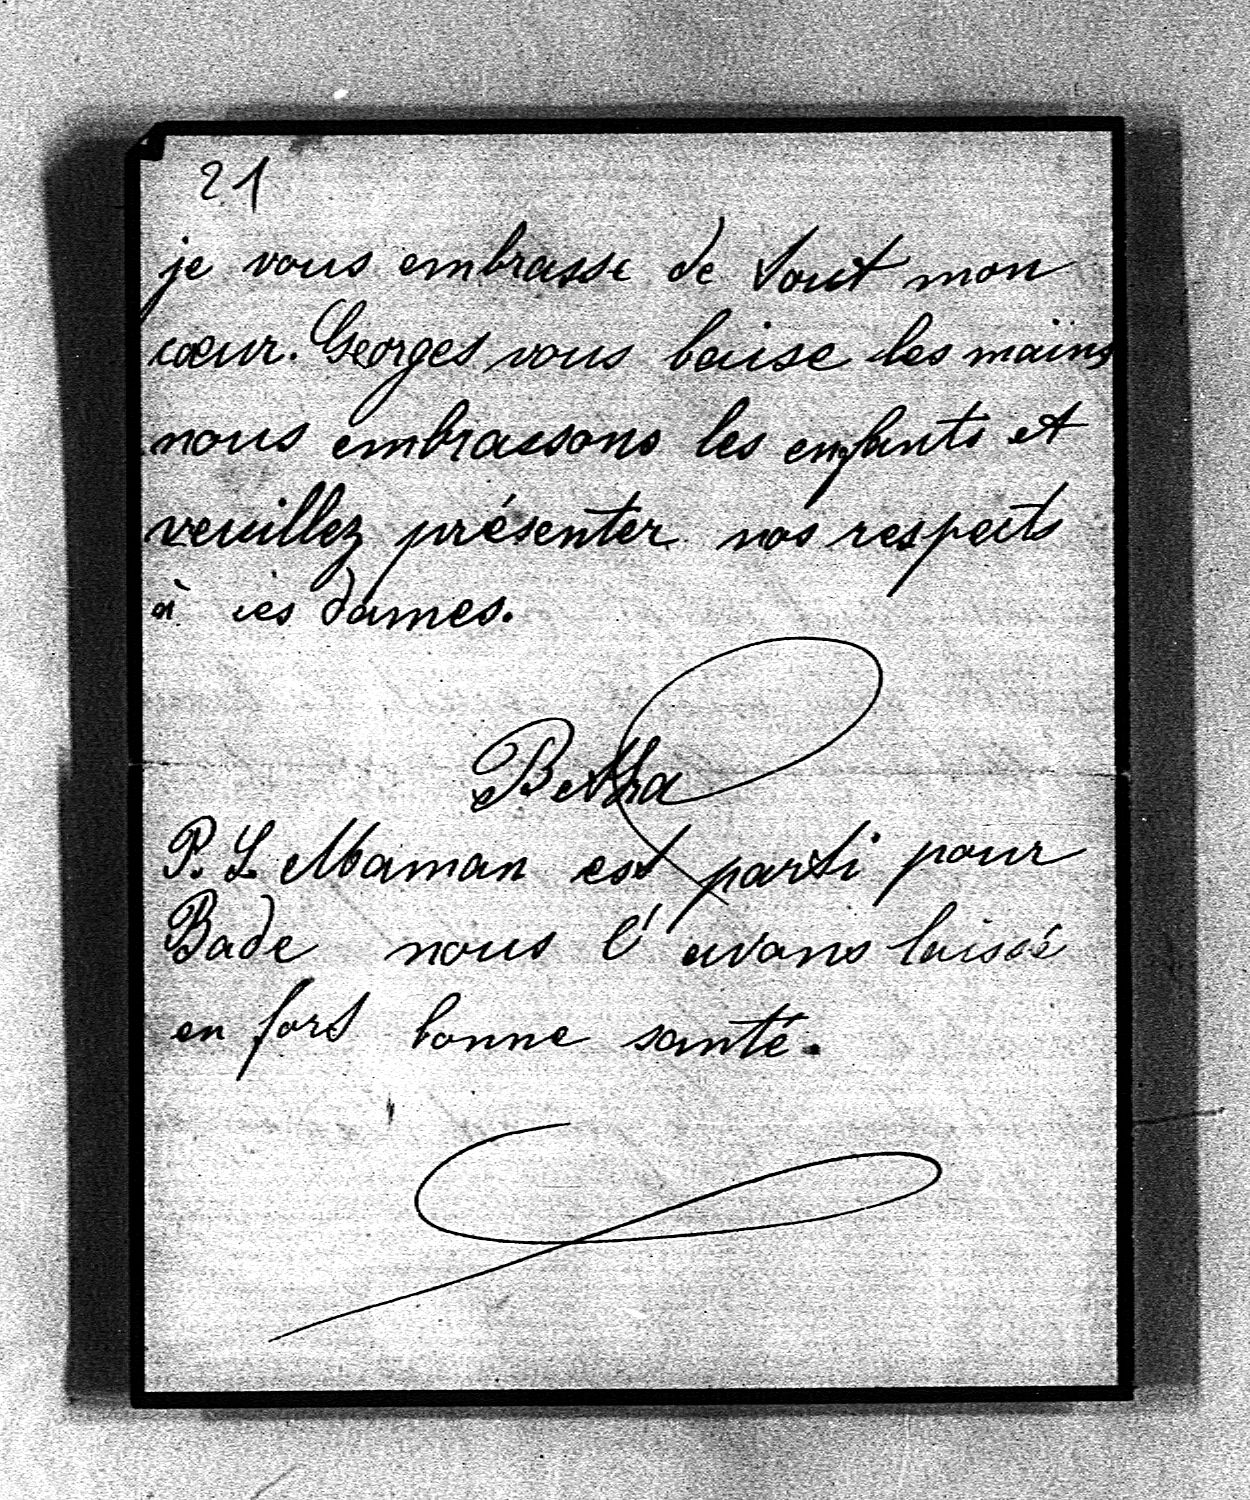 21
je vous embrasse de tout mon
cœur. Georges vous baise les mains
nous embrassons les enfants et
veuillez présenter nos respects
à ces dames.
Bertha
P. S. Maman est parti pour
Bade nous l'avons laissé
en fort bonne santé.